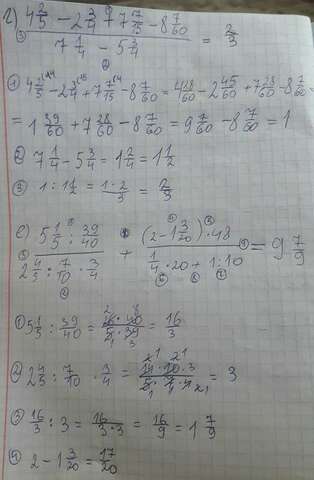 г) (4 2/5 − 2 3/4 + 7 7/15 − 8 7/60) / (7 1/4 − 5 3/4) = 2/3
① 4 2/5 − 2 3/4 + 7 7/15 − 8 7/60 = 4 28/60 − 2 45/60 + 7 28/60 − 8 7/60 =
= 1 39/60 + 7 28/60 − 8 7/60 = 9 7/60 − 8 7/60 = 1
② 7 1/4 − 5 3/4 = 1 2/4 = 1 1/2
③ 1 : 1 1/2 = 1·2/3 = 2/3
е) (5 1/5 : 39/40) / (2 4/5 : 7/10 · 3/4) + ((2 − 1 3/20) · 48) / (1/4 · 20 + 1:10) = 9 7/9
① 5 1/5 : 39/40 = 26·40/5·39 = 16/3
② 2 4/5 : 7/10 · 3/4 = 14·10·3/5·7·4 = 3
③ 16/3 : 3 = 16/3·3 = 16/9 = 1 7/9
⑤ 2 − 1 3/20 = 17/20